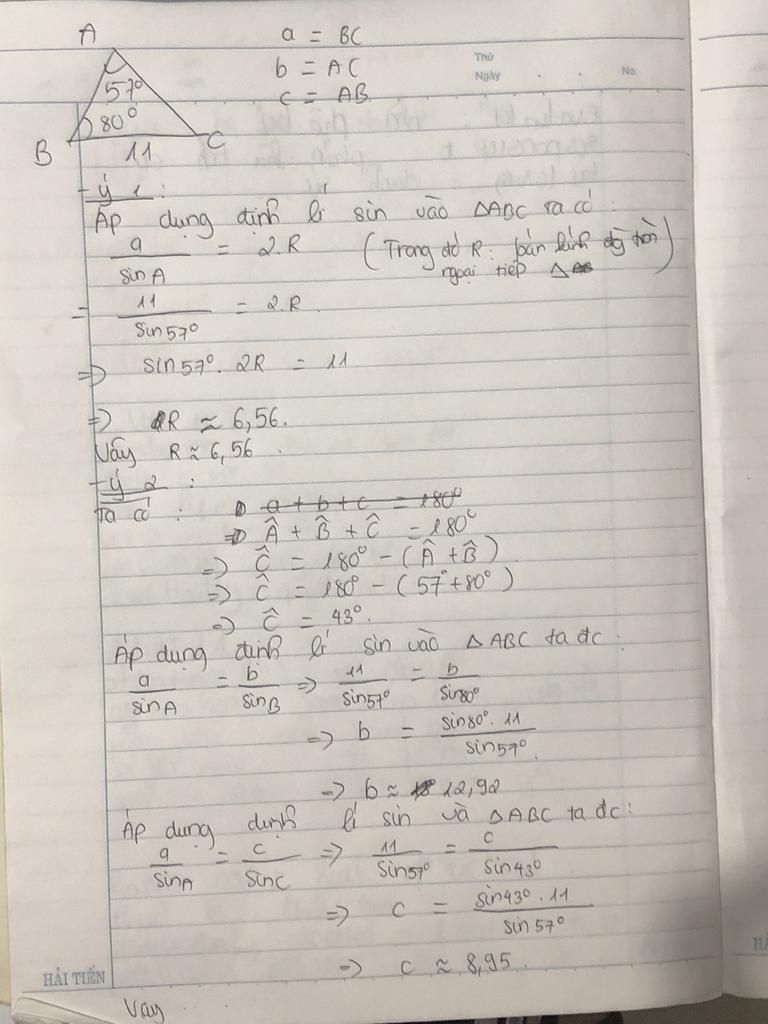 A
a = BC
b = AC
c = AB
Thứ
Ngày
No.
57°
80°
B
C
11
- Ý 1 :
Áp dụng định lí sin vào ΔABC ta có :
a/sinA = 2.R (Trong đó R: bán kính đg tròn
ngoại tiếp Δ
= 11/sin57° = 2.R
=> sin57°. 2R = 11
=> R ≈ 6,56.
Vậy R ≈ 6,56 .
- Ý 2 :
Ta có : a + b + c = 180°
=> Â + B̂ + Ĉ = 180°
=> Ĉ = 180° - (Â + B̂)
=> Ĉ = 180° - (57° + 80°)
=> Ĉ = 43°.
Áp dụng định lí sin vào ΔABC ta đc :
a/sinA = b/sinB => 11/sin57° = b/sin80°
=> b = sin80°. 11/sin57°.
=> b ≈ 12,92
Áp dụng định lí sin và ΔABC ta đc:
a/sinA = c/sinC => 11/sin57° = c/sin43°
=> c = sin43°. 11/sin57°
=> c ≈ 8,95.
HẢI TIẾN
Vậy